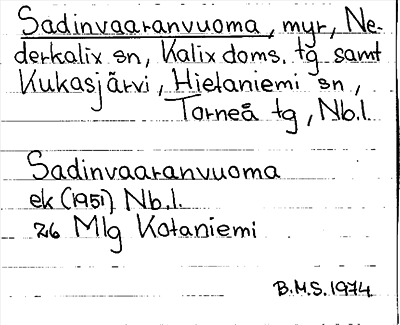 Sadinvaaranvuoma, myr, Ne-
derkalix sn, Kalix doms. tg samt
Kukasjärvi, Hietaniemi sn,
Torneå tg, Nb.l.
Sadinvaaranvuoma
ek (1951) Nb.l.
26 Mlg Kotaniemi
B.M.S. 1974